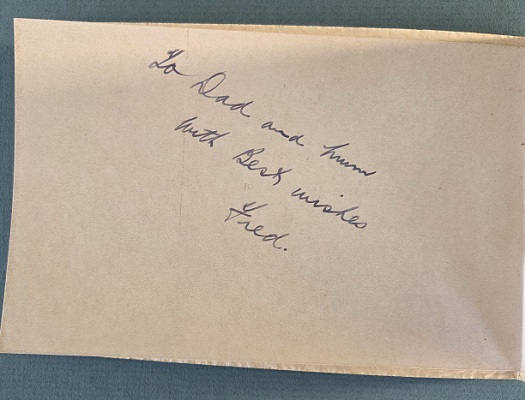 To Dad and Mum
With Best wishes
Fred.